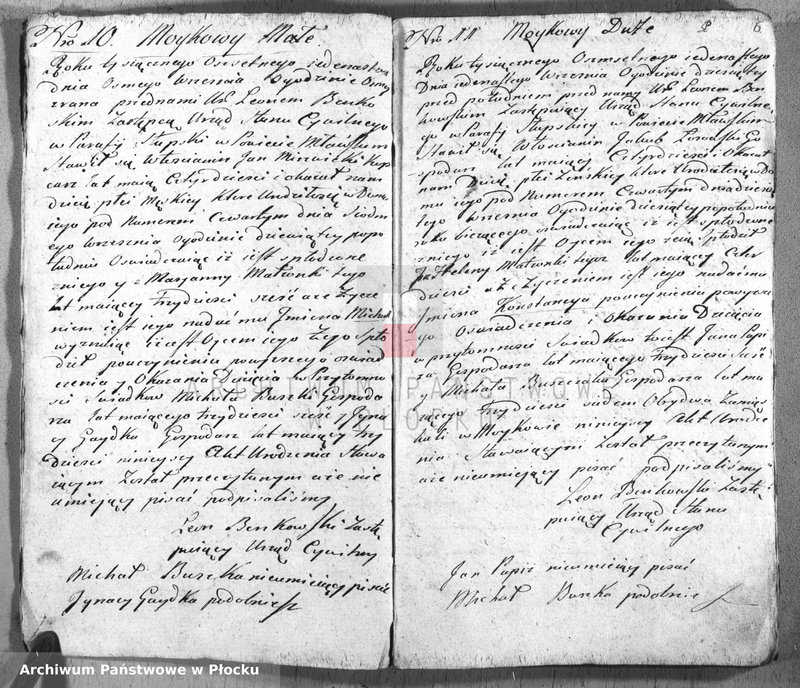 Nro 10. Moykowy Małe.
Roku tysiącznego Osmsetnego iedenastego
dnia Osmego Wrzesnia Ogodzinie Osmey
zrana przednami Ur. Leonem Benko
skim Zastępcą Urząd Stanu Cywilnego
w Parafy Stupski w Powiecie Mławskim
Stawił się Włoscianin Jan
lat maią Czterdziesci i okazał nam
dziecię płci Męskiey ktore Urodziło się w Domu
iego pod Numerem Czwartym dnia Siodm
ego Wrzesnia Ogodzinie dziewiątey popo
łudniu Oswiadczaiąc iż iest spłodzone
zniego y z Maryanny Małzonki iego
lat maiący trzydziesci szesć a ze Zycze
niem iest iego nadać mu Jmiona Michał
iż iest Oycem iego Zego Spło
dził pouczynieniu powyszego oswiad
czenia y Okazania Dziecia w Przytomno
sci Swiadkow Michała Buszki Gospoda
rza lat maiącego trzydziesci szesć y Jgna
cy Gaydka Gospodarz lat maiący trzy
dziesci ninieyszy Akt Urodzenia Stawa
iącym Został przeczytanym a ze nie
umieiący pisać podpisalismy
Leon Benkowski Zastę
puiący Urząd Cywilny
Michał Buszka nieumieiący pisać
Jgnacy Gaydka podobniesz
Nro 11 Moykowy Duże 6
Roku tysiącznego Osmsetnego iedenastego
Dnia iedenastego Wrzesnia Ogodzinie dziesiątey
przed południem przed namy Ur. Leonem Ben
kowskim Zastępuiący Urząd Stanu Cywilne
go w Parafy Stupskiey w Powiecie Mławskim
Stawił się Włoscianin Jakub Go
spodarz lat maiący Czterdziesci i Okazał
nam Dziecię płci Zenskiey ktore Urodziło się w Do
mu iego pod Numerem Czwartym dnia dziesią
tego Wrzesnia Ogodzinie dziesiątey popołudniu
roku biezącego oswiadczaiąc iż iest spłodzone
zniego iż iest Oycem iego spłodził
Heleny Małzonki lat maiący Czter
dziesci a ze Zyczeniem iest iego nadać mu
Jmiona Konstancya pouczynieniu powyzsze
go Oswiadczenia i Okazania Dziecięcia
w przytomnosci Swiadkow to iest Jana Papi
za Gospodarza lat maiący trzydziesci Szesć
y Michała Buszki Gospodarza lat ma
iącego trzydziesci siedem Obydwa Zamiesz
kali w Moykowie ninieyszy Akt Urodze
nia Stawaiącym Został przeczytanym
a ze nieumieiący pisać podpisalismy
Leon Benkowski Zastę
puiący Urząd Stanu
Cywilnego
Jan Papiz nieumieiący pisać
Michał Buszka podobnie
ARCHIWUM PAŃSTWOWE
W PŁOCKU
Archiwum Państwowe w Płocku